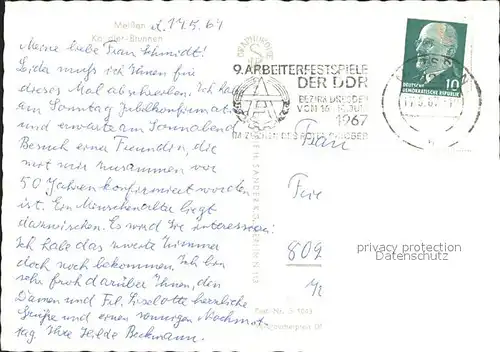 Meißen
d. 17.5.67
Kändler-Brunnen
Meine liebe Frau Schmidt!
Leider muß ich Ihnen für
dieses Mal abschreiben. Ich habe
am Sonntag Jubelkonfirmat
und erwarte am Sonnabend
Besuch einer Freundin die
mit mir zusammen vor
50 Jahren konfirmiert worden
ist. Ein Menschenalter liegt
dazwischen. Es wird Sie interessieren:
Ich habe das zweite Zimmer
doch noch bekommen. Ich bin
sehr froh darüber Ihnen, den
Damen und Frl. Liselotte herzliche
Grüße und einen sonnigen Nachmit-
tag Ihre Hilde Beckmann.
9. ARBEITERFESTSPIELE
DER DDR
BEZIRK DRESDEN
VON 16.
1967
IM ZEICHEN DES ROTEN OKTOBER
10
DEUTSCHE
DEMOKRATISCHE REPUBLIK
Frau
809
privacy protection
Datenschutz